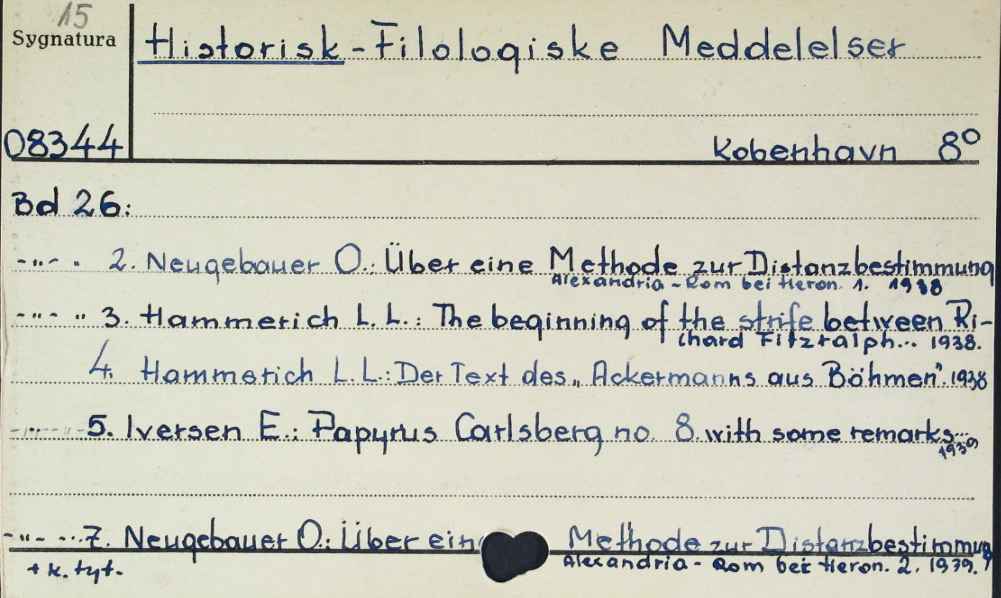 15
Sygnatura
Historisk-Filologiske Meddelelser
08344
Kobenhavn 8°
Bd 26:
-"- . 2. Neugebauer O.: Über eine Methode zur Distanzbestimmung
Alexandria - Rom bei Heron. 1. 1938
-"- " 3. Hammerich L. L.: The beginning of the strife between Ri-
chard Fitzralph... 1938.
4. Hammerich L. L.: Der Text des „Ackermanns aus Böhmen". 1938
-"- 5. Iversen E.: Papyrus Carlsberg no. 8. with some remarks...
1939
-"- ... 7. Neugebauer O.: Über ein Methode zur Distanzbestimmung
+ k. tyt.
Alexandria - Rom bei Heron. 2. 1939.